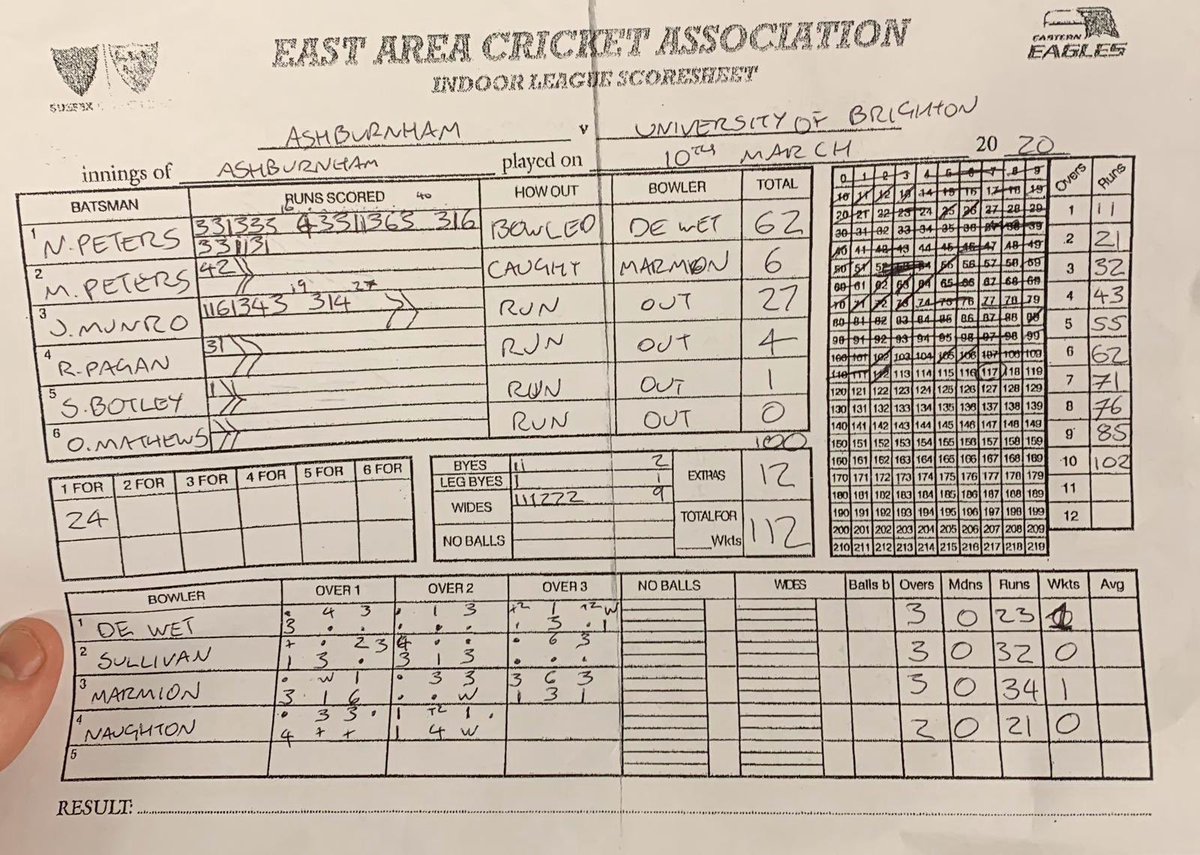 SUSSEX
EASTERN EAGLES
EAST AREA CRICKET ASSOCIATION
INDOOR LEAGUE SCORESHEET
ASHBURNHAM v UNIVERSITY OF BRIGHTON
innings of ASHBURNHAM played on 10TH MARCH 20 20
BATSMAN RUNS SCORED HOW OUT BOWLER TOTAL
16 40
1 N. PETERS 331333 4331 1363 316 BOWLED DE WET 62
331131
2 M. PETERS 42 CAUGHT MARMION 6
19 27
3 J. MUNRO 1161343 314 RUN OUT 27
4 R. PAGAN 31 RUN OUT 4
5 S. BOTLEY 1 RUN OUT 1
6 O. MATHEWS RUN OUT 0
100
0 1 2 3 4 5 6 7 8 9
10 11 12 13 14 15 16 17 18 19
20 21 22 23 24 25 26 27 28 29
30 31 32 33 34 35 36 37 38 39
40 41 42 43 44 45 46 47 48 49
50 51 52 53 54 55 56 57 58 59
60 61 62 63 64 65 66 67 68 69
70 71 72 73 74 75 76 77 78 79
80 81 82 83 84 85 86 87 88 89
90 91 92 93 94 95 96 97 98 99
100 101 102 103 104 105 106 107 108 109
110 111 112 113 114 115 116 117 118 119
120 121 122 123 124 125 126 127 128 129
130 131 132 133 134 135 136 137 138 139
140 141 142 143 144 145 146 147 148 149
150 151 152 153 154 155 156 157 158 159
160 161 162 163 164 165 166 167 168 169
170 171 172 173 174 175 176 177 178 179
180 181 182 183 184 185 186 187 188 189
190 191 192 193 194 195 196 197 198 199
200 201 202 203 204 205 206 207 208 209
210 211 212 213 214 215 216 217 218 219
Overs Runs
1 11
2 21
3 32
4 43
5 55
6 62
7 71
8 76
9 85
10 102
11
12
1 FOR 2 FOR 3 FOR 4 FOR 5 FOR 6 FOR
24
BYES 11 2
LEG BYES 1 1
WIDES 111222 9
NO BALLS
EXTRAS 12
TOTAL FOR
Wkts 112
BOWLER OVER 1 OVER 2 OVER 3 NO BALLS WIDES Balls b Overs Mdns Runs Wkts Avg
1 DE WET . 4 3 . 1 3 +2 1 +2 W 3 0 23 1
3 . . . . . . 3 . 1
2 SULLIVAN + . 2 3 4 . . . 6 3 3 0 32 0
1 3 . 3 1 3 . . .
3 MARMION . W 1 . 3 3 3 6 3 3 0 34 1
3 1 6 . . W 1 3 1
4 NAUGHTON . 3 3 . 1 +2 1 . 2 0 21 0
4 + + 1 4 W
5
RESULT: